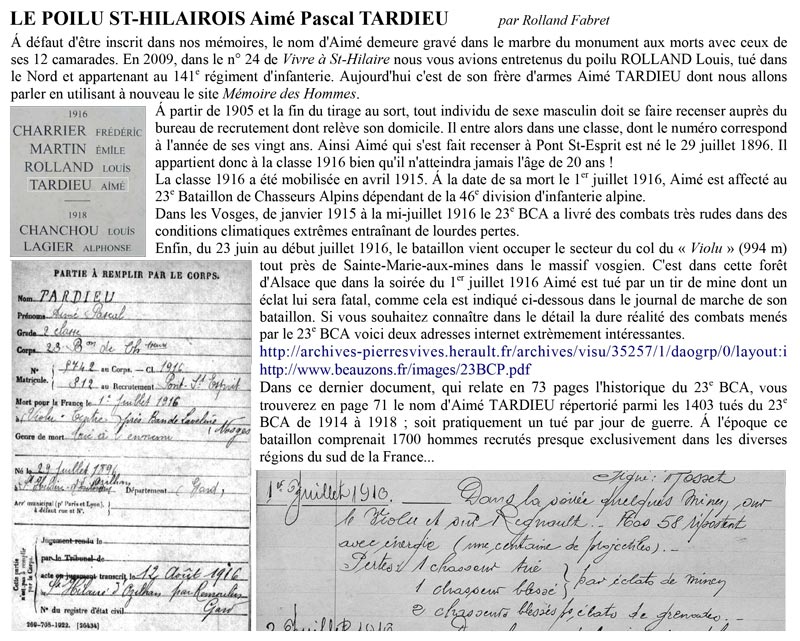 LE POILU ST-HILAIROIS Aimé Pascal TARDIEU par Rolland Fabret
Á défaut d'être inscrit dans nos mémoires, le nom d'Aimé demeure gravé dans le marbre du monument aux morts avec ceux de
ses 12 camarades. En 2009, dans le n° 24 de Vivre à St-Hilaire nous vous avions entretenus du poilu ROLLAND Louis, tué dans
le Nord et appartenant au 141e régiment d'infanterie. Aujourd'hui c'est de son frère d'armes Aimé TARDIEU dont nous allons
parler en utilisant à nouveau le site Mémoire des Hommes.
1916
CHARRIER FRÉDÉRIC
MARTIN ÉMILE
ROLLAND LOUIS
TARDIEU AIMÉ
1918
CHANCHOU LOUIS
LAGIER ALPHONSE
Á partir de 1905 et la fin du tirage au sort, tout individu de sexe masculin doit se faire recenser auprès du
bureau de recrutement dont relève son domicile. Il entre alors dans une classe, dont le numéro correspond
à l'année de ses vingt ans. Ainsi Aimé qui s'est fait recenser à Pont St-Esprit est né le 29 juillet 1896. Il
appartient donc à la classe 1916 bien qu'il n'atteindra jamais l'âge de 20 ans !
La classe 1916 a été mobilisée en avril 1915. Á la date de sa mort le 1er juillet 1916, Aimé est affecté au
23e Bataillon de Chasseurs Alpins dépendant de la 46e division d'infanterie alpine.
Dans les Vosges, de janvier 1915 à la mi-juillet 1916 le 23e BCA a livré des combats très rudes dans des
conditions climatiques extrêmes entraînant de lourdes pertes.
Enfin, du 23 juin au début juillet 1916, le bataillon vient occuper le secteur du col du « Violu » (994 m)
tout près de Sainte-Marie-aux-mines dans le massif vosgien. C'est dans cette forêt
d'Alsace que dans la soirée du 1er juillet 1916 Aimé est tué par un tir de mine dont un
éclat lui sera fatal, comme cela est indiqué ci-dessous dans le journal de marche de son
bataillon. Si vous souhaitez connaître dans le détail la dure réalité des combats menés
par le 23e BCA voici deux adresses internet extrèmement intéressantes.
http://archives-pierresvives.herault.fr/archives/visu/35257/1/daogrp/0/layout:i
http://www.beauzons.fr/images/23BCP.pdf
Dans ce dernier document, qui relate en 73 pages l'historique du 23e BCA, vous
trouverez en page 71 le nom d'Aimé TARDIEU répertorié parmi les 1403 tués du 23e
BCA de 1914 à 1918 ; soit pratiquement un tué par jour de guerre. Á l'époque ce
bataillon comprenait 1700 hommes recrutés presque exclusivement dans les diverses
régions du sud de la France...
PARTIE À REMPLIR PAR LE CORPS.
Nom TARDIEU
Prénoms Aimé Pascal
Grade 2 classe
Corps 23 Bon de Ch
N° 8742 au Corps. — Cl. 1916
Matricule. 812 au Recrutement Pont-St Esprit
Mort pour la France le 1er juillet 1916
Violu
Vosges
Genre de mort tué à l'ennemi
Né le 29 juillet 1896
Département Gard
Arrt municipal (pr Paris et Lyon),
à défaut rue et N°.
Cette partie n'est pas à remplir par le Corps.
Jugement rendu le
par le Tribunal de
acte ou jugement transcrit le 12 Août 1916
St Hilaire d'Ozilhan par Remoulins
Gard
N° du registre d'état civil
269-708-1922. [26434]
Signé: Rosset
1er Juillet 1916. — Dans la soirée quelques mines sur
le Violu et sur Regnault. — Nos 58 ripostent
avec énergie (une centaine de projectiles). —
Pertes: 1 chasseur tué
1 chasseur blessé } par éclats de mines
2 chasseurs blessés p. éclats de grenades. —
2 Juillet 1916